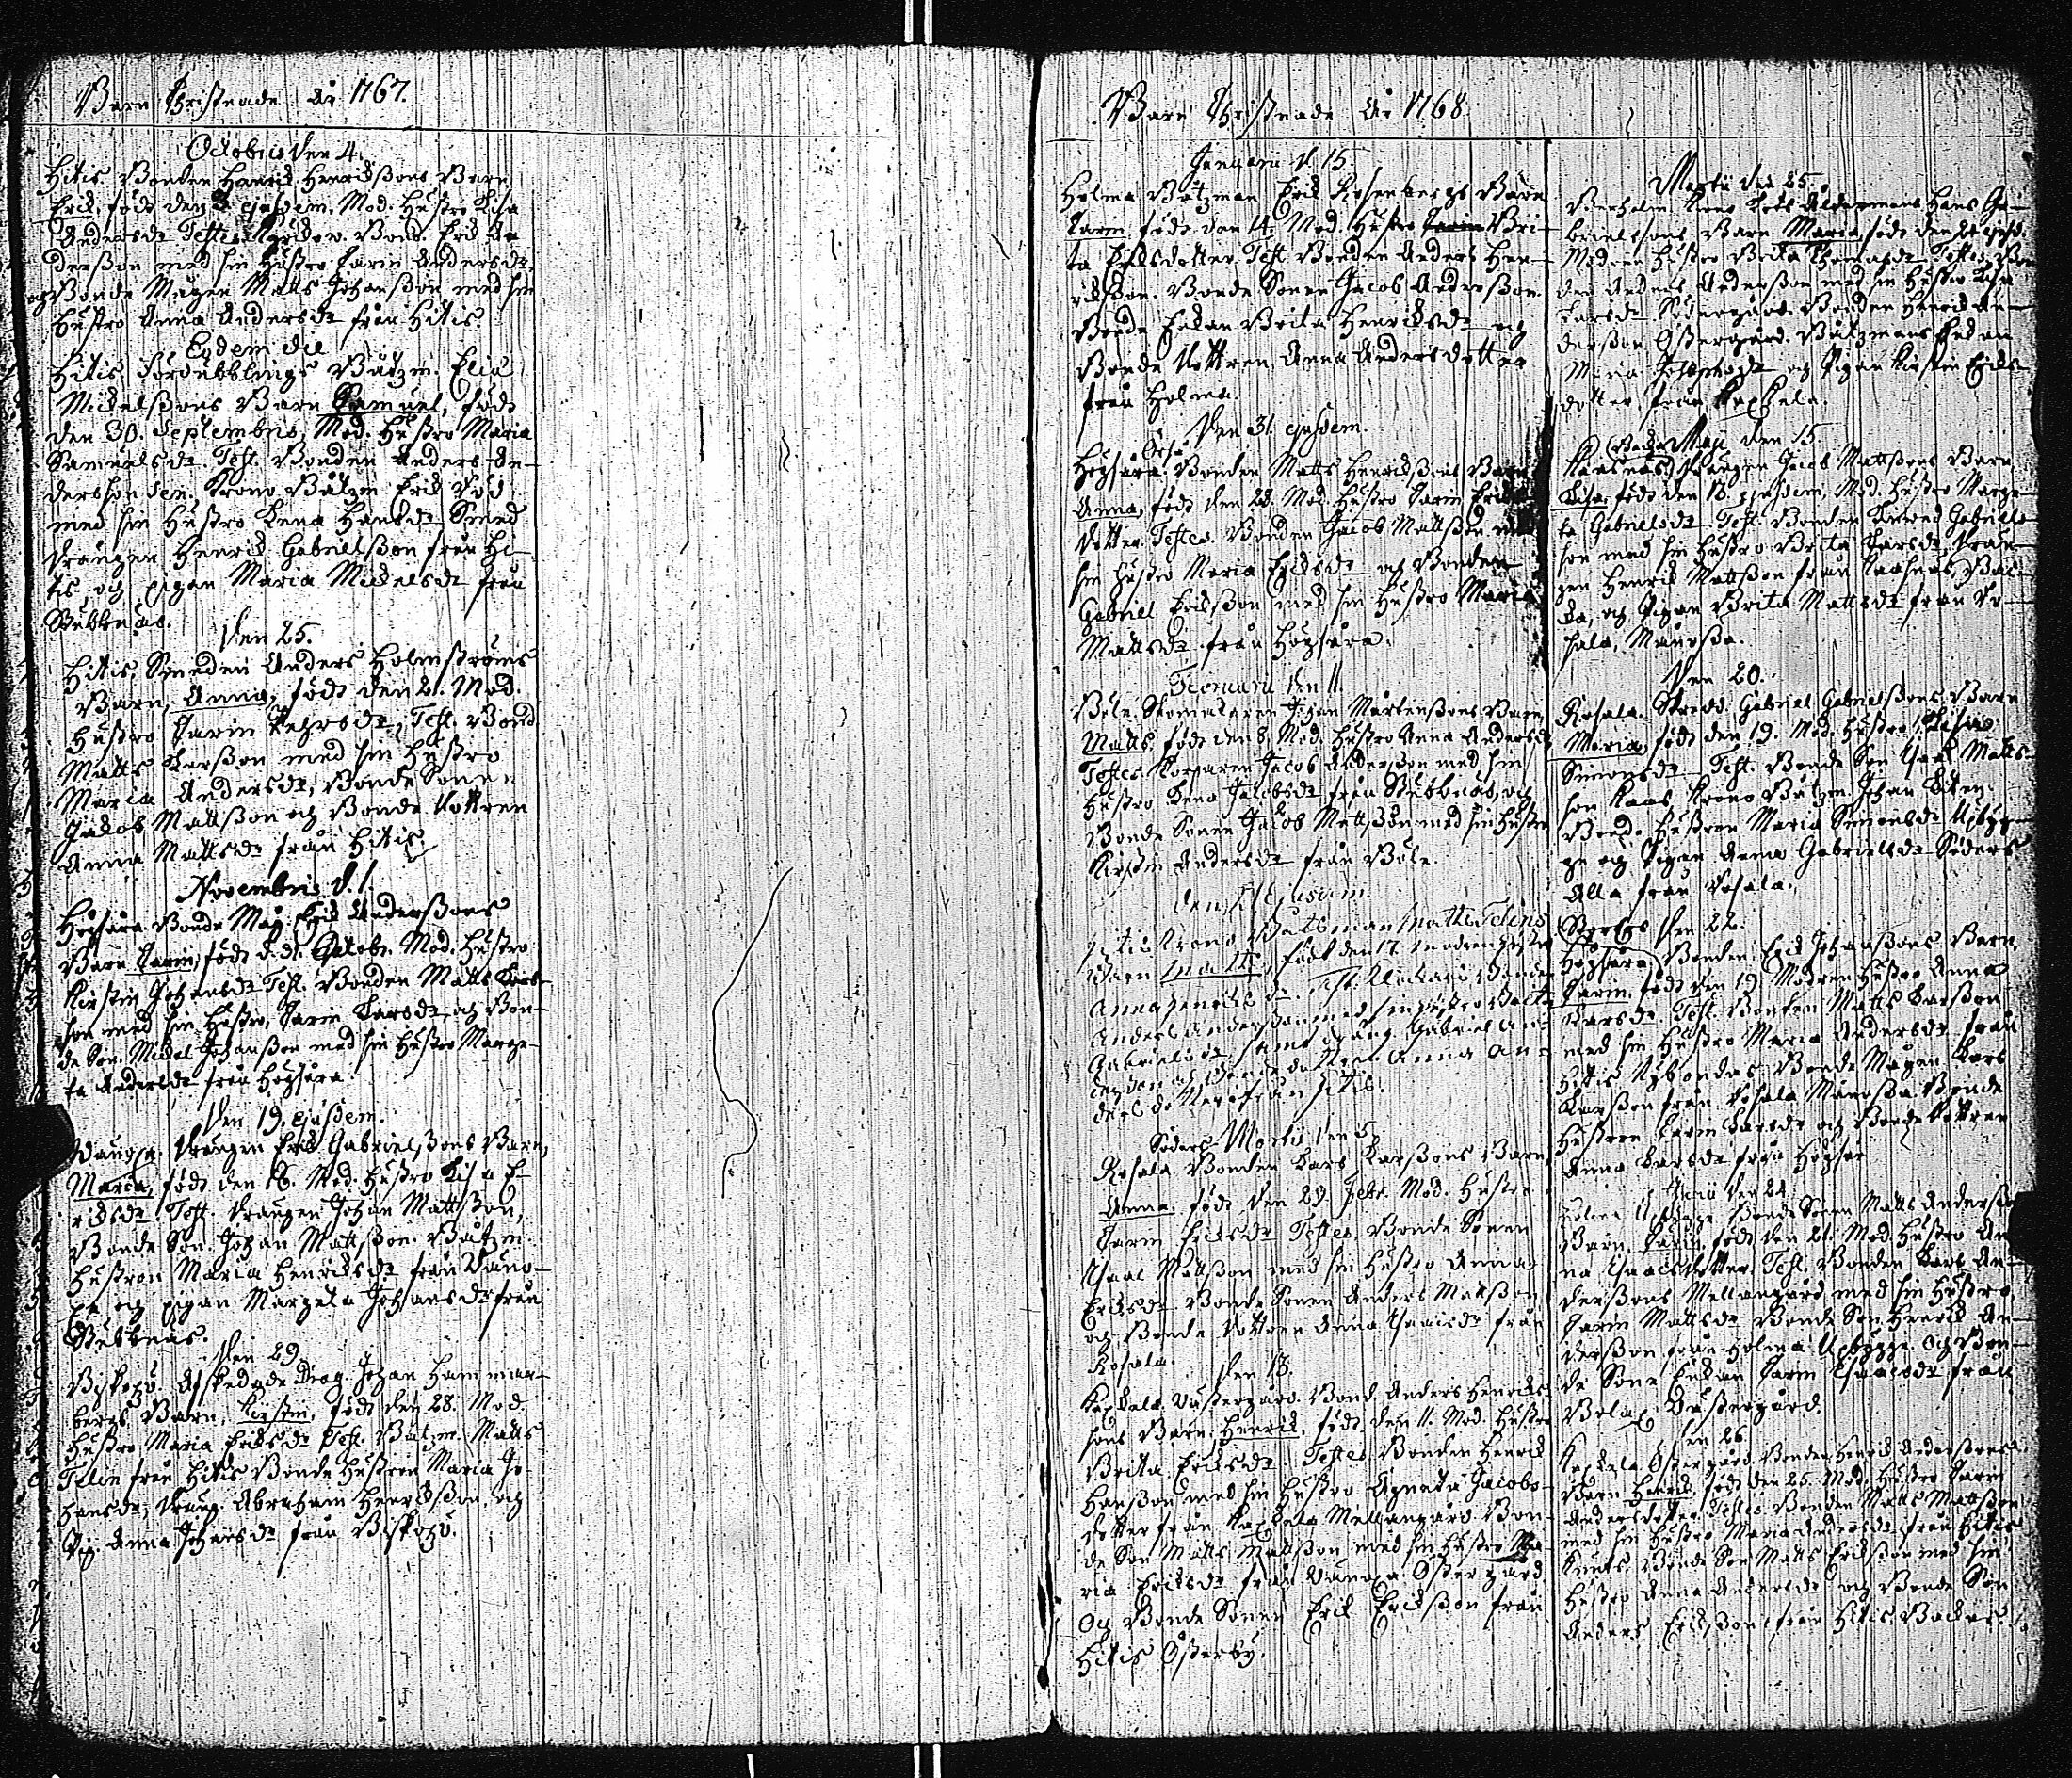 Barn Christnade År 1767.
Octobris den 4.
Hitis Bonden Henrik Henrikßons Barn
Erik, född den 3 ejusdem. Mod. Hustro Lisa
Andersdr Testes. Bond. Erik An
derßon med sin Hustro Carin Andersdr,
och Bonde Mågen Matts Johanßon med sin
Hustro Anna Andersdr från Hitis.
Eodem die
Hitis Fördubblings Båtzm. Elias
Mickelßons Barn Samuel, född
den 30. Septembris. Mod. Hustro Maria
Samuelsdr. Test. Bonden Anders An-
dersson Sen. Krono Båtzm Erik Röd
med sin Hustro Lena Hansdr Smed
Drängen Henrik Gabrielßon från Hi-
tis, och Pigan Maria Mickelsdr från
Stubbnäs.
Den 25.
Hitis, Smeden Anders Holmströms
Barn, Anna, född den 21. Mod.
Hustro Carin Pehrsdr, Test. Bond
Matts Larßon med sin Hustro
Maria Andersdr, Bonde Sonen
Jakob Mattßon och Bonde Dottren
Anna Mattsdr från Hitis.
Novembris d. 1.
Högsåra Bonde Måg. Erik Anderßons
Barn Carin, född d. 31. Octobr. Mod. Hustro
Kirstin Johansdr Test. Bonden Matts Lars-
son med sin Hustro, Carin Larsdr och Bon-
de Son. Mickel Johanßon med sin Hustro Marge-
ta Andersdr från Högsåra.
Den 19. ejusdem.
Vånoxa. Drängen Erik Gabrielßons Barn,
Maria, född den 16. Mod. Hustro Lisa E-
riksdr. Test. Drängen Johan Mattßon,
Bonde Son. Johan Mattßon. Båtzm.
Hustron Maria Henriksdr från Våno-
xa och Pigan Margeta Johansdr från
Stubbnäs.
Den 29.
Biskopsö. Afskedade Drag. Johan Hammar-
bergs Barn, Kirstin, född den 28. Mod.
Hustro Maria Eriksdr Test. Båtzm. Matts
Telin från Hitis Bonde Hustron Maria Jo-
hansdr, Dräng. Abraham Henrikßon, och
Pig. Anna Johansdr från Biskopsö.
Barn Christnade År 1768.
Januarii d. 15.
Holma Båtzman Erik Rosenbergs Barn
Carin född den 14. Mod. Hustro Bri-
ta Eriksdotter. Test. Bonden Anders Hen-
rikßon. Bonde Sonen Jacob Anderßon.
Bonde Enkan Brita Henriksdr och
Bonde Dottren Anna Andersdotter
från Holma.
Den 31. ejusdem.
Högsåra. Bonden Matts Henrikßons Barn
Anna, född den 28. Mod. Hustro Carin Eriks
dotter. Testes. Bonden Jacob Mattßon med
sin Hustro Maria Eriksdr och Bonden
Gabriel Erikßon med sin Hustro Maria
Mattsdr från Högsåra.
Februarii den 11.
Böle. Skomakaren Johan Mårtenßons Barn,
Matts, född den 8. Mod. Hustro Anna Andersdr
Testes. Korparen Jacob Anderßon med sin
Hustro Lena Jacobsdr från Stubbnäs, och
Bonde Sonen Jacob Mattßon med sin Hustro
Kirstin Andersdr från Böle.
Den ejusdem.
Hitis Krono Båtsman Matts Telins
Barn Matts, född den 17. Modren Hustro
Anna Henriksdr. Test. Bonden
Anders Andersson med sin Hustro Brita
Gabrielsdr, samt Gabriel An-
och Bonde Dottren Anna An-
dersdotter från Hitis.
Martii den 5.
Söders
Rosala Bonden Lars Larßons Barn,
Anna född den 29. Febr. Mod. Hustro
Carin Eriksdr Testes, Bonde Sonen
Isaac Mattßon med sin Hustro Anna
Eriksdr Bonde Sonen Anders Mattßon
och Bonde Dottren Anna Isaacsdr från
Rosala.
Den 18.
Kaxkela Västergård. Bond. Anders Henriks-
sons Barn. Henrik, född den 11. Mod. Hustro
Brita Eriksdr. Testes Bonden Henrik
Hanßon med sin Hustro Agnata Jacobs-
dotter från Kaxkela Mellangård. Bon-
de Son Matts Mattßon med sin Hustro Ma-
ria Eriksdr från Vånoxa Östergård
Och Bonde Sonen Erik Erikßon från
Hitis Österby.
Martii den 25.
Krono Lots Åldermans Hans Ga-
brielssons Barn Maria, född den 24 ejusd.
Modren Hustro Brita Thomasdr. Testes. Bon
den Anders Anderßon med sin Hustro Lisa
Larsdr Södergård. Bonden Henrik An-
derßon Östergård. Båtzmans Enkan
Maria Josephsdr och Pigan Kirstin Eriks-
dotter från Kaxkela.
Maji den 15.
Kasnäs Drängen Jacob Mattßons Barn
Lisa, född den 13. ejusdem, Mod. Hustro Marge-
ta Gabrielsdr Test. Bonden Gabriels-
son med sin Hustro Brita Larsdr, Drän-
gen Henrik Mattßon från Kasnäs, Bac-
ka, och Pigan Brita Mattsdr från Ro-
sala, Månsßa.
Den 20.
Rosala. Skredd. Gabriel Gabrielßons Barn
Maria, född den 19. Mod. Hustro Lisa
Simonsdr Test. Bonde Son Isaac Matts-
son Krono Båtzm. Johan Liten.
Bond. Hustron Maria Simonsdr Uppbyg-
ge och Pigan Anna Gabrielsdr Söders
Alla från Rosala.
Den 22.
Högsåra Bonden Erik Johanßons Barn
Carin, född den 19. Modren Hustro Anna
Larsdr Test. Bonden Matts Larßon
med sin Hustro Maria Andersdr från
Hitis Nybondas Bonde Mågen Lars
Larßon från Rosala Månsßa. Bonde
Hustron Carin Larsdr och Bonde Dottren
Anna Larsdr från Högsår
Junii den 24.
Holma Uppbygge Bonde Sonen Matts Anderßons
Barn, Carin född den 21. Mod. Hustro An
na Isaacsdotter. Test. Bonden Lars An-
derßons Mellangård med sin Hustro
Carin Mattsdr Bonde Son Henrik An-
derßon från Holma Uppbygge. Och Bon-
de Sone Enkan Carin Isaacsdr från
Bolax Västergård.
Den 26.
Kaxkela Östergård. Bonden Henrik Anderßons
Barn Henrik, född den 25. Mod. Hustro Carin
Andersdotter. Testes Bonden Matts Mattßon
med sin Hustro Maria Andersdr från Hitis
Knuts, Bonde Son Matts Erikßon med sin
Hustro Anna Andersdr och Bonde Son
Anders Erikßon från Hitis Backars.